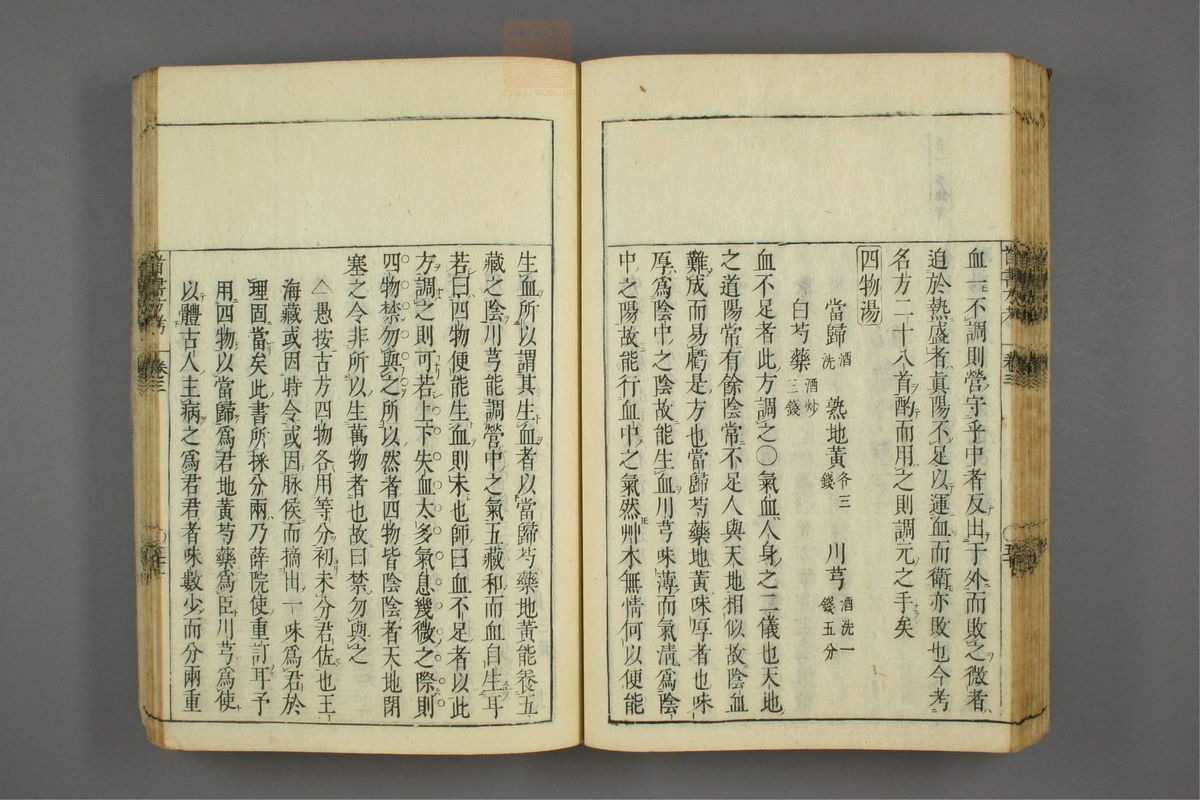 血一不調則營守乎中者反出于外而敗之微者
迫於熱盛者眞陽不足以運血而衛亦敗也今考
名方二十八首酌而用之則調元之手矣
四物湯
當歸酒洗 熟地黃各三錢 川芎酒洗一錢五分
白芍藥酒炒三錢
血不足者此方調之○氣血人身之二儀也天地
之道陽常有餘陰常不足人與天地相似故陰血
難成而易虧是方也當歸芍藥地黃味厚者也味
厚爲陰中之陰故能生血川芎味薄而氣淸爲陰
中之陽故能行血中之氣然艸木無情何以便能
生血所以謂其生血者以當歸芍藥地黃能養五
藏之陰川芎能調營中之氣五藏和而血自生耳
若曰四物便能生血則未也師曰血不足者以此
方調之則可若上下失血太多氣息幾微之際則
四物禁勿與之所以然者四物皆陰陰者天地閉
塞之令非所以生萬物者也故曰禁勿與之
△愚按古方四物各用等分初未分君佐也王
海藏或因時令或因脉候而摘出一味爲君於
理固當矣此書所採分兩乃薛院使重訂耳予
用四物以當歸爲君地黃芍藥爲臣川芎爲使
以體古人主病之爲君君者味數少而分兩重